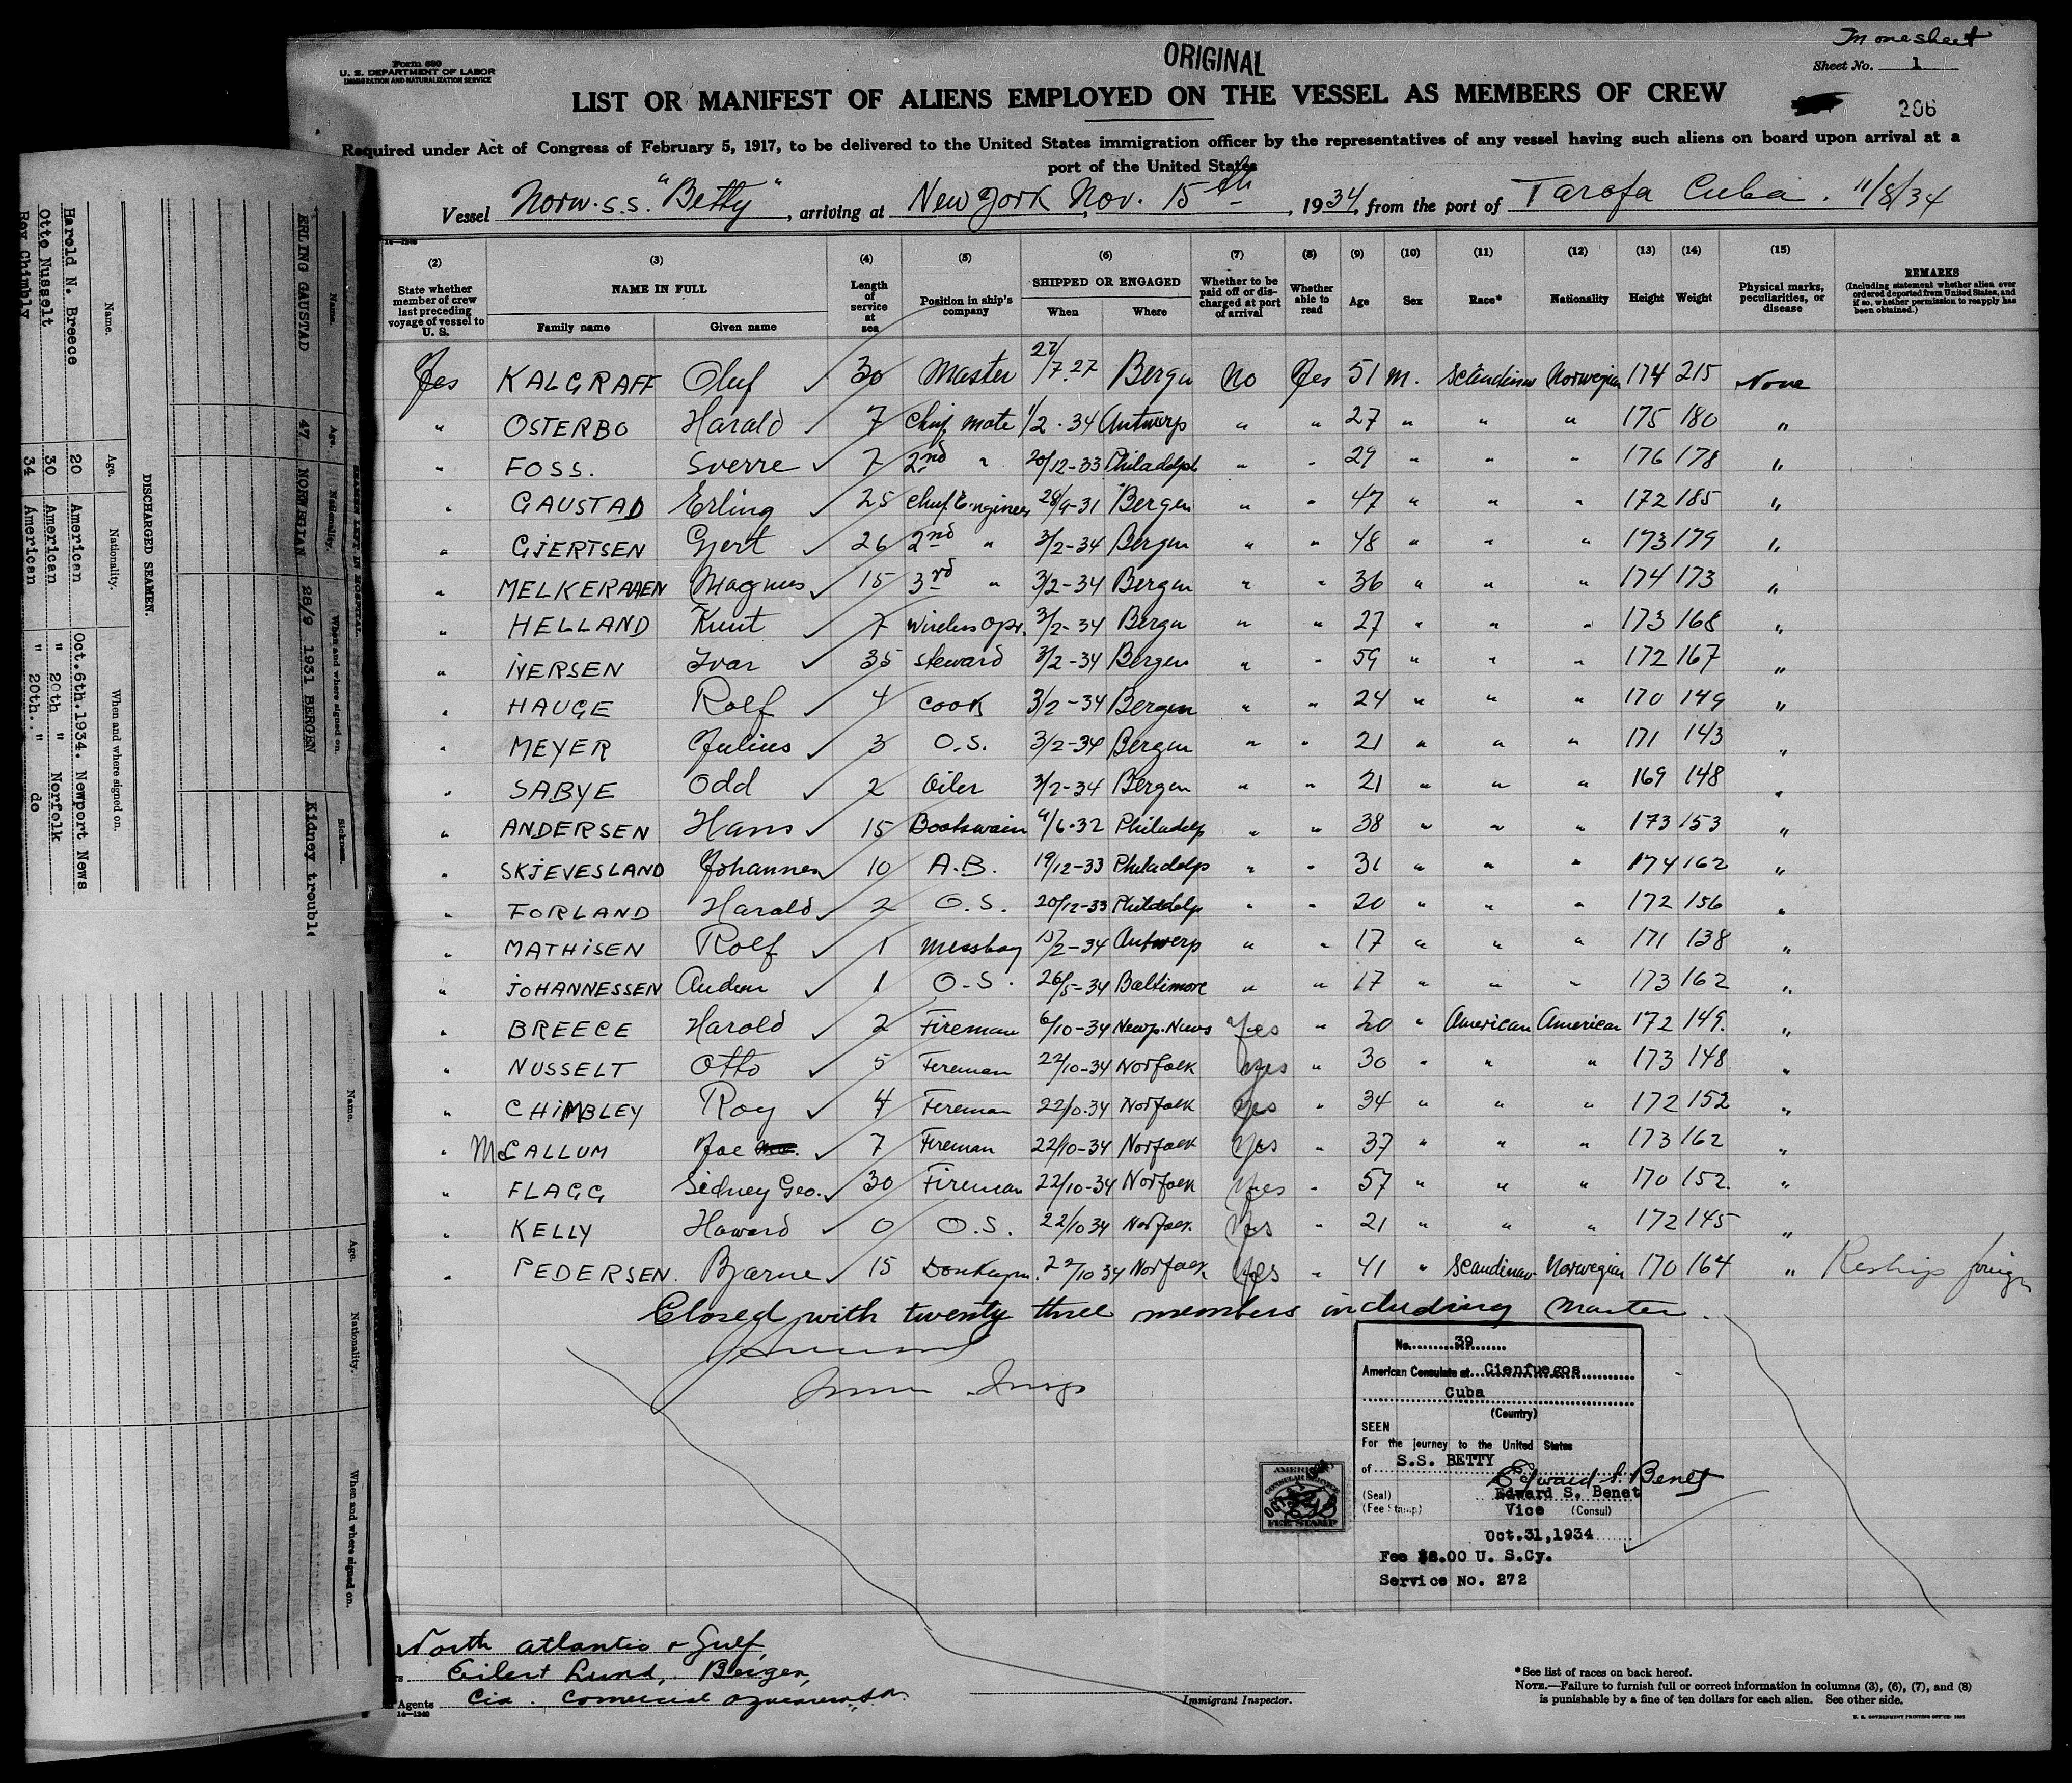 Form 680
U. S. DEPARTMENT OF LABOR
IMMIGRATION AND NATURALIZATION SERVICE
ORIGINAL
In one sheet
Sheet No. 1
LIST OR MANIFEST OF ALIENS EMPLOYED ON THE VESSEL AS MEMBERS OF CREW
206
Required under Act of Congress of February 5, 1917, to be delivered to the United States immigration officer by the representatives of any vessel having such aliens on board upon arrival at a
port of the United States
Vessel Norw. S.S. "Betty", arriving at New York, Nov. 15th, 1934, from the port of Tarafa Cuba. 11/8/34
14—1240
(2) (3) (4) (5) (6) (7) (8) (9) (10) (11) (12) (13) (14) (15)
State whether member of crew last preceding voyage of vessel to U. S.
NAME IN FULL
Family name Given name
Length of service at sea
Position in ship's company
SHIPPED OR ENGAGED
When Where
Whether to be paid off or discharged at port of arrival
Whether able to read
Age Sex Race* Nationality Height Weight
Physical marks, peculiarities, or disease
REMARKS
(Including statement whether alien ever ordered deported from United States, and if so, whether permission to reapply has been obtained.)
Yes KALGRAFF Oluf ✓ 30 Master 27/7.27 Bergn No Yes 51 m. Scandinav Norwegian 174 215 None
" OSTERBO Harald ✓ 7 Chief mate 1/2.34 Antwerp " " 27 " " " 175 180 "
" FOSS. Sverre ✓ 7 2nd " 20/12-33 Philadelph " " 29 " " " 176 178 "
" GAUSTAD Erling ✓ 25 Chief Engineer 28/9-31 Bergen " " 47 " " " 172 185 "
" GJERTSEN Gjert ✓ 26 2nd " 3/2-34 Bergen " " 48 " " " 173 179 "
" MELKERAAEN Magnus ✓ 15 3rd " 3/2-34 Bergen " " 36 " " " 174 173 "
" HELLAND Knut ✓ 7 Wireless Opr. 3/2-34 Bergn " " 27 " " " 173 168 "
" IVERSEN Ivar ✓ 35 Steward 3/2-34 Bergen " " 59 " " " 172 167 "
" HAUGE Rolf ✓ 4 Cook 3/2-34 Bergen " " 24 " " " 170 149 "
" MEYER Julius ✓ 3 O.S. 3/2-34 Bergen " " 21 " " " 171 143 "
" SABYE Odd ✓ 2 Oiler 3/2-34 Bergen " " 21 " " " 169 148 "
" ANDERSEN Hans ✓ 15 Boatswain 9/6.32 Philadelp " " 38 " " " 173 153 "
" SKJEVESLAND Johannes ✓ 10 A.B. 19/12-33 Philadelp " " 31 " " " 174 162 "
" FORLAND Harald ✓ 2 O.S. 20/12-33 Philadelp " " 20 " " " 172 156 "
" MATHISEN Rolf ✓ 1 Messboy 15/2-34 Antwerp " " 17 " " " 171 138 "
" JOHANNESSEN ✓ 1 O.S. 26/5-34 Baltimore " " 17 " " " 173 162 "
" BREECE Harold ✓ 2 Fireman 6/10-34 Newp. News Yes " 20 " American American 172 149. "
" NUSSELT Otto ✓ 5 Fireman 22/10-34 Norfolk Yes " 30 " " " 173 148 "
" CHIMBLEY Roy ✓ 4 Fireman 22/10-34 Norfolk Yes " 34 " " " 172 152 "
" McCALLUM Joe ✓ 7 Fireman 22/10-34 Norfolk Yes " 37 " " " 173 162 "
" FLAGG Sidney Geo. ✓ 30 Fireman 22/10-34 Norfolk Yes " 57 " " " 170 152. "
" KELLY Howard ✓ 0 O.S. 22/10 34 Norfolk Yes " 21 " " " 172 145 "
" PEDERSEN. Bjarne ✓ 15 Donkeym. 22/10 34 Norfolk Yes " 41 " Scandinav Norwegian 170 164 " Reship foreign
Closed with twenty three members including Master.
No. 39
American Consulate at Cienfuegos
Cuba
(Country)
SEEN
For the journey to the United States
of S.S. BETTY
Edward S. Benet
(Seal) Edward S. Benet
(Fee Stamp) Vice (Consul)
Oct.31,1934
Fee $2.00 U. S.Cy.
Service No. 272
AMERICAN
CONSULAR SERVICE
FEE STAMP
North Atlantic & Gulf
Eilert Lund, Bergen,
Agents Cia. Comercial
14—1240
Immigrant Inspector.
*See list of races on back hereof.
NOTE.—Failure to furnish full or correct information in columns (3), (6), (7), and (8)
is punishable by a fine of ten dollars for each alien. See other side.
U. S. GOVERNMENT PRINTING OFFICE: 1932
SEAMEN LEFT IN HOSPITAL.
Name. Age. Nationality. When and where signed on. Sickness.
ERLING GAUSTAD 47 NORWEGIAN 28/9 1931 BERGEN Kidney trouble
DISCHARGED SEAMEN.
Name. Age. Nationality. When and where signed on.
Harold N. Breece 20 American Oct.6th.1934. Newport News
Otto Nusselt 30 American " 20th " Norfolk
Roy Chimbly 34 American " 20th.. " do
Name. Age. Nationality. When and where signed on.